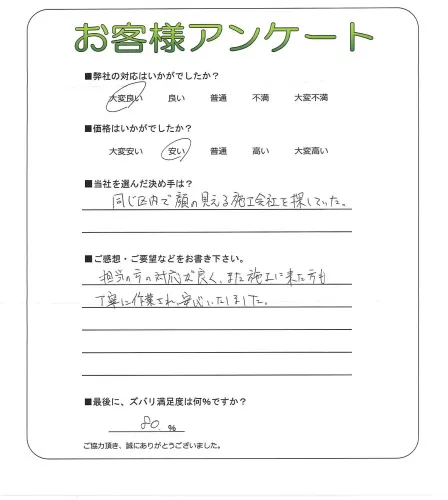 お客様アンケート
■弊社の対応はいかがでしたか？
大変良い 良い 普通 不満 大変不満
■価格はいかがでしたか？
大変安い 安い 普通 高い 大変高い
■当社を選んだ決め手は？
同じ区内で顔の見える施工会社を探していた。
■ご感想・ご要望などをお書き下さい。
担当の方の対応が良く、また施工に来た方も
丁寧に作業され安心いたしました。
■最後に、ズバリ満足度は何%ですか？
80. %
ご協力頂き、誠にありがとうございました。